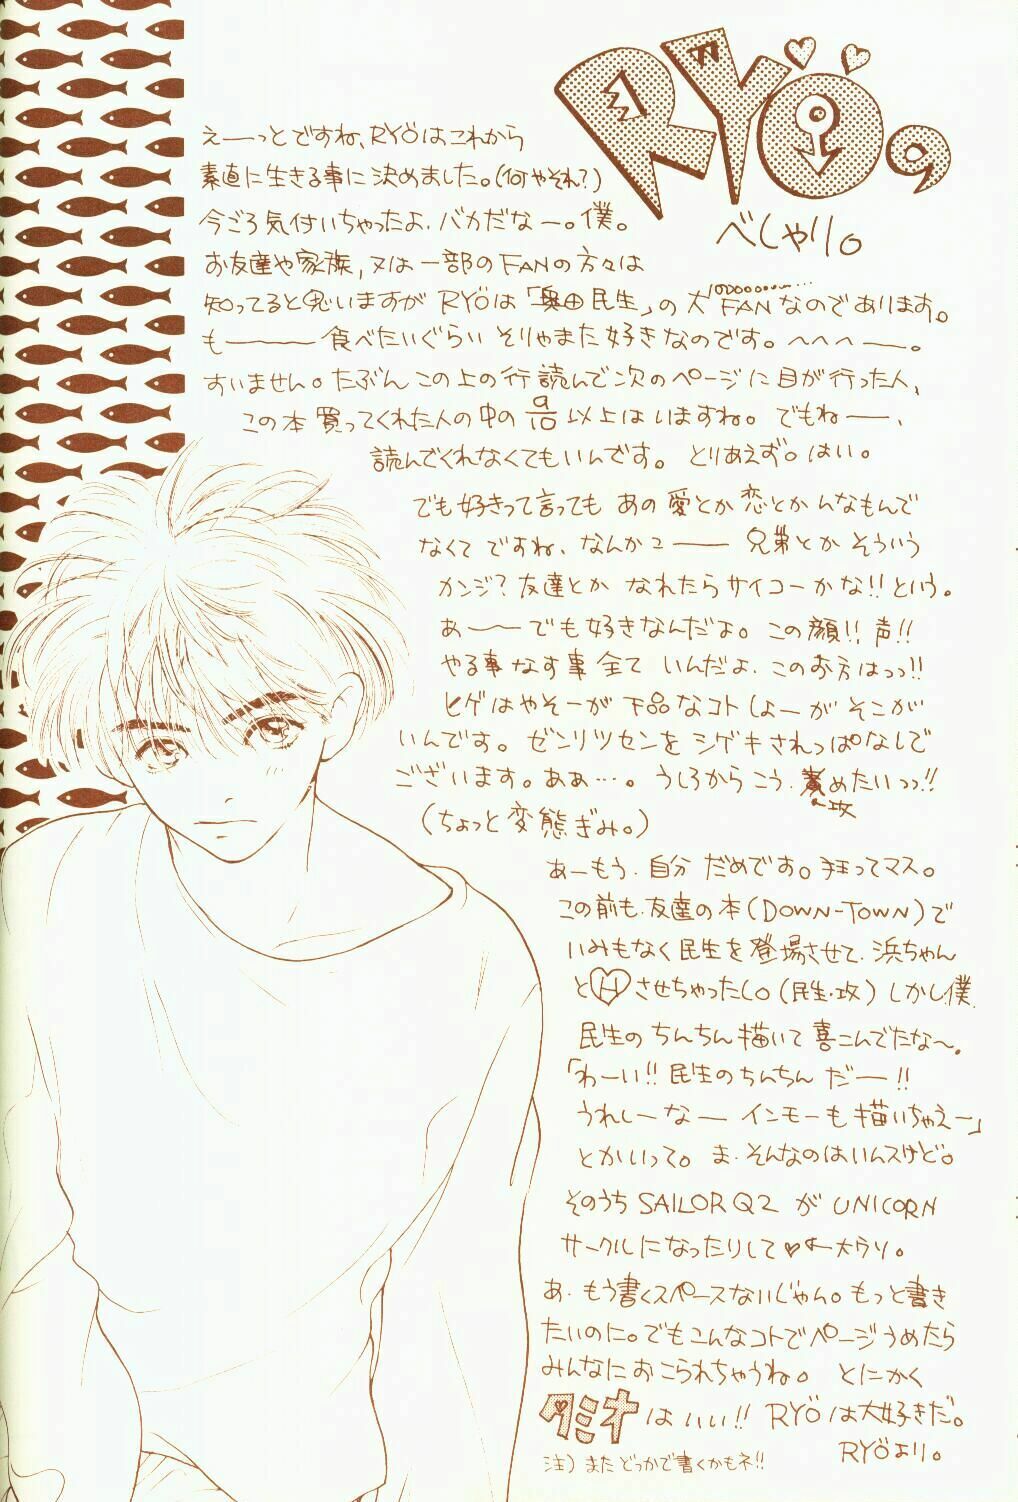 RYÖの
べしゃり。
えーっとですね、RYÖはこれから
素直に生きる事に決めました。(何やそれ?)
今ごろ気付いちゃったよ、バカだなー。僕。
お友達や家族,又は一部のFANの方々は
知ってると思いますがRYÖは「奥田民生」の大FANなのであります。
も——食べたいぐらいそりゃまた好きなのです。へへへー。
すいません。たぶんこの上の行読んで次のページに目が行った人、
この本買ってくれた人の中の9/10以上はいますね。でもねー、
読んでくれなくてもいんです。とりあえず。はい。
でも好きって言ってもあの愛とか恋とかんなもんで
なくてですね、なんかこー—兄弟とかそういう
カンジ?友達とかなれたらサイコーかな!!という。
あ〜〜でも好きなんだよ。この顔!!声!!
やる事なす事全ていんだよ、このお方はっっ!!
ヒゲはやそーが下品なコトしよーがそこが
いんです。ゼンリツセンをシゲキされっぱなしで
ございます。あぁ…。うしろからこう、責めたいっっ!!
攻
(ちょっと変態ぎみ。)
あーもう、自分だめです。狂ってマス。
この前も、友達の本(DOWN-TOWN)で
いみもなく民生を登場させて、浜ちゃん
とHさせちゃったし。(民生・攻)しかし、僕、
民生のちんちん描いて喜こんでたな〜。
「わーい!!民生のちんちんだー!!
うれしーなーインモーも描いちゃえー」
とかいって。ま、そんなのはいんスけど。
そのうちSAILOR Q2がUNICORN
サークルになったりして♥←大ウソ。
あ、もう書くスペースないじゃん。もっと書き
たいのに。でもこんなコトでページうめたら
みんなにおこられちゃうね。とにかく
タミオはいい!!RYÖは大好きだ。
RYÖより。
注)またどっかで書くかもネ!!